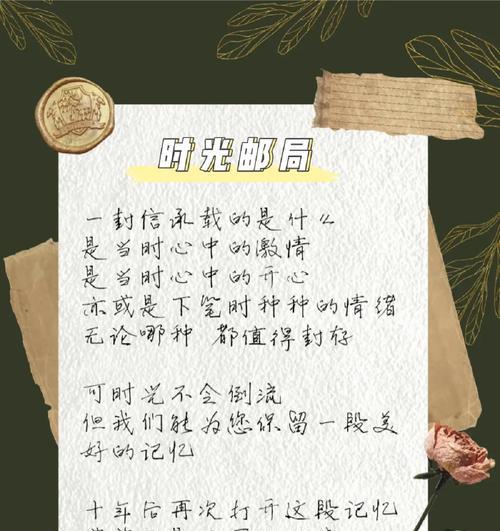 时光邮局
一封信承载的是什么
是当时心中的激情
是当时心中的开心
亦或是下笔时种种的情绪
无论哪种 都值得封存
可时光不会倒流
但我们能为您保留一段美
好的记忆
十年后再次打开这段记忆